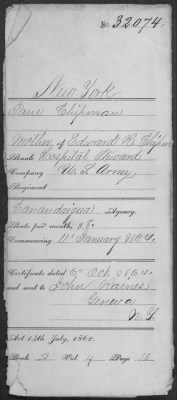 No. 32074.
New York
Jane Chipman
Mother of Edward R. Chipman
Rank Hospital Steward
Company U. S. Army
Regiment
Canandaigua Agency.
Rate per month, $8.00
Commencing 11th January 1865.
Certificate dated 6th Oct. 1865.
and sent to John Raines
Geneva
N.Y.
Act 14th July, 1862.
Book 3 Vol. 4 Page 16